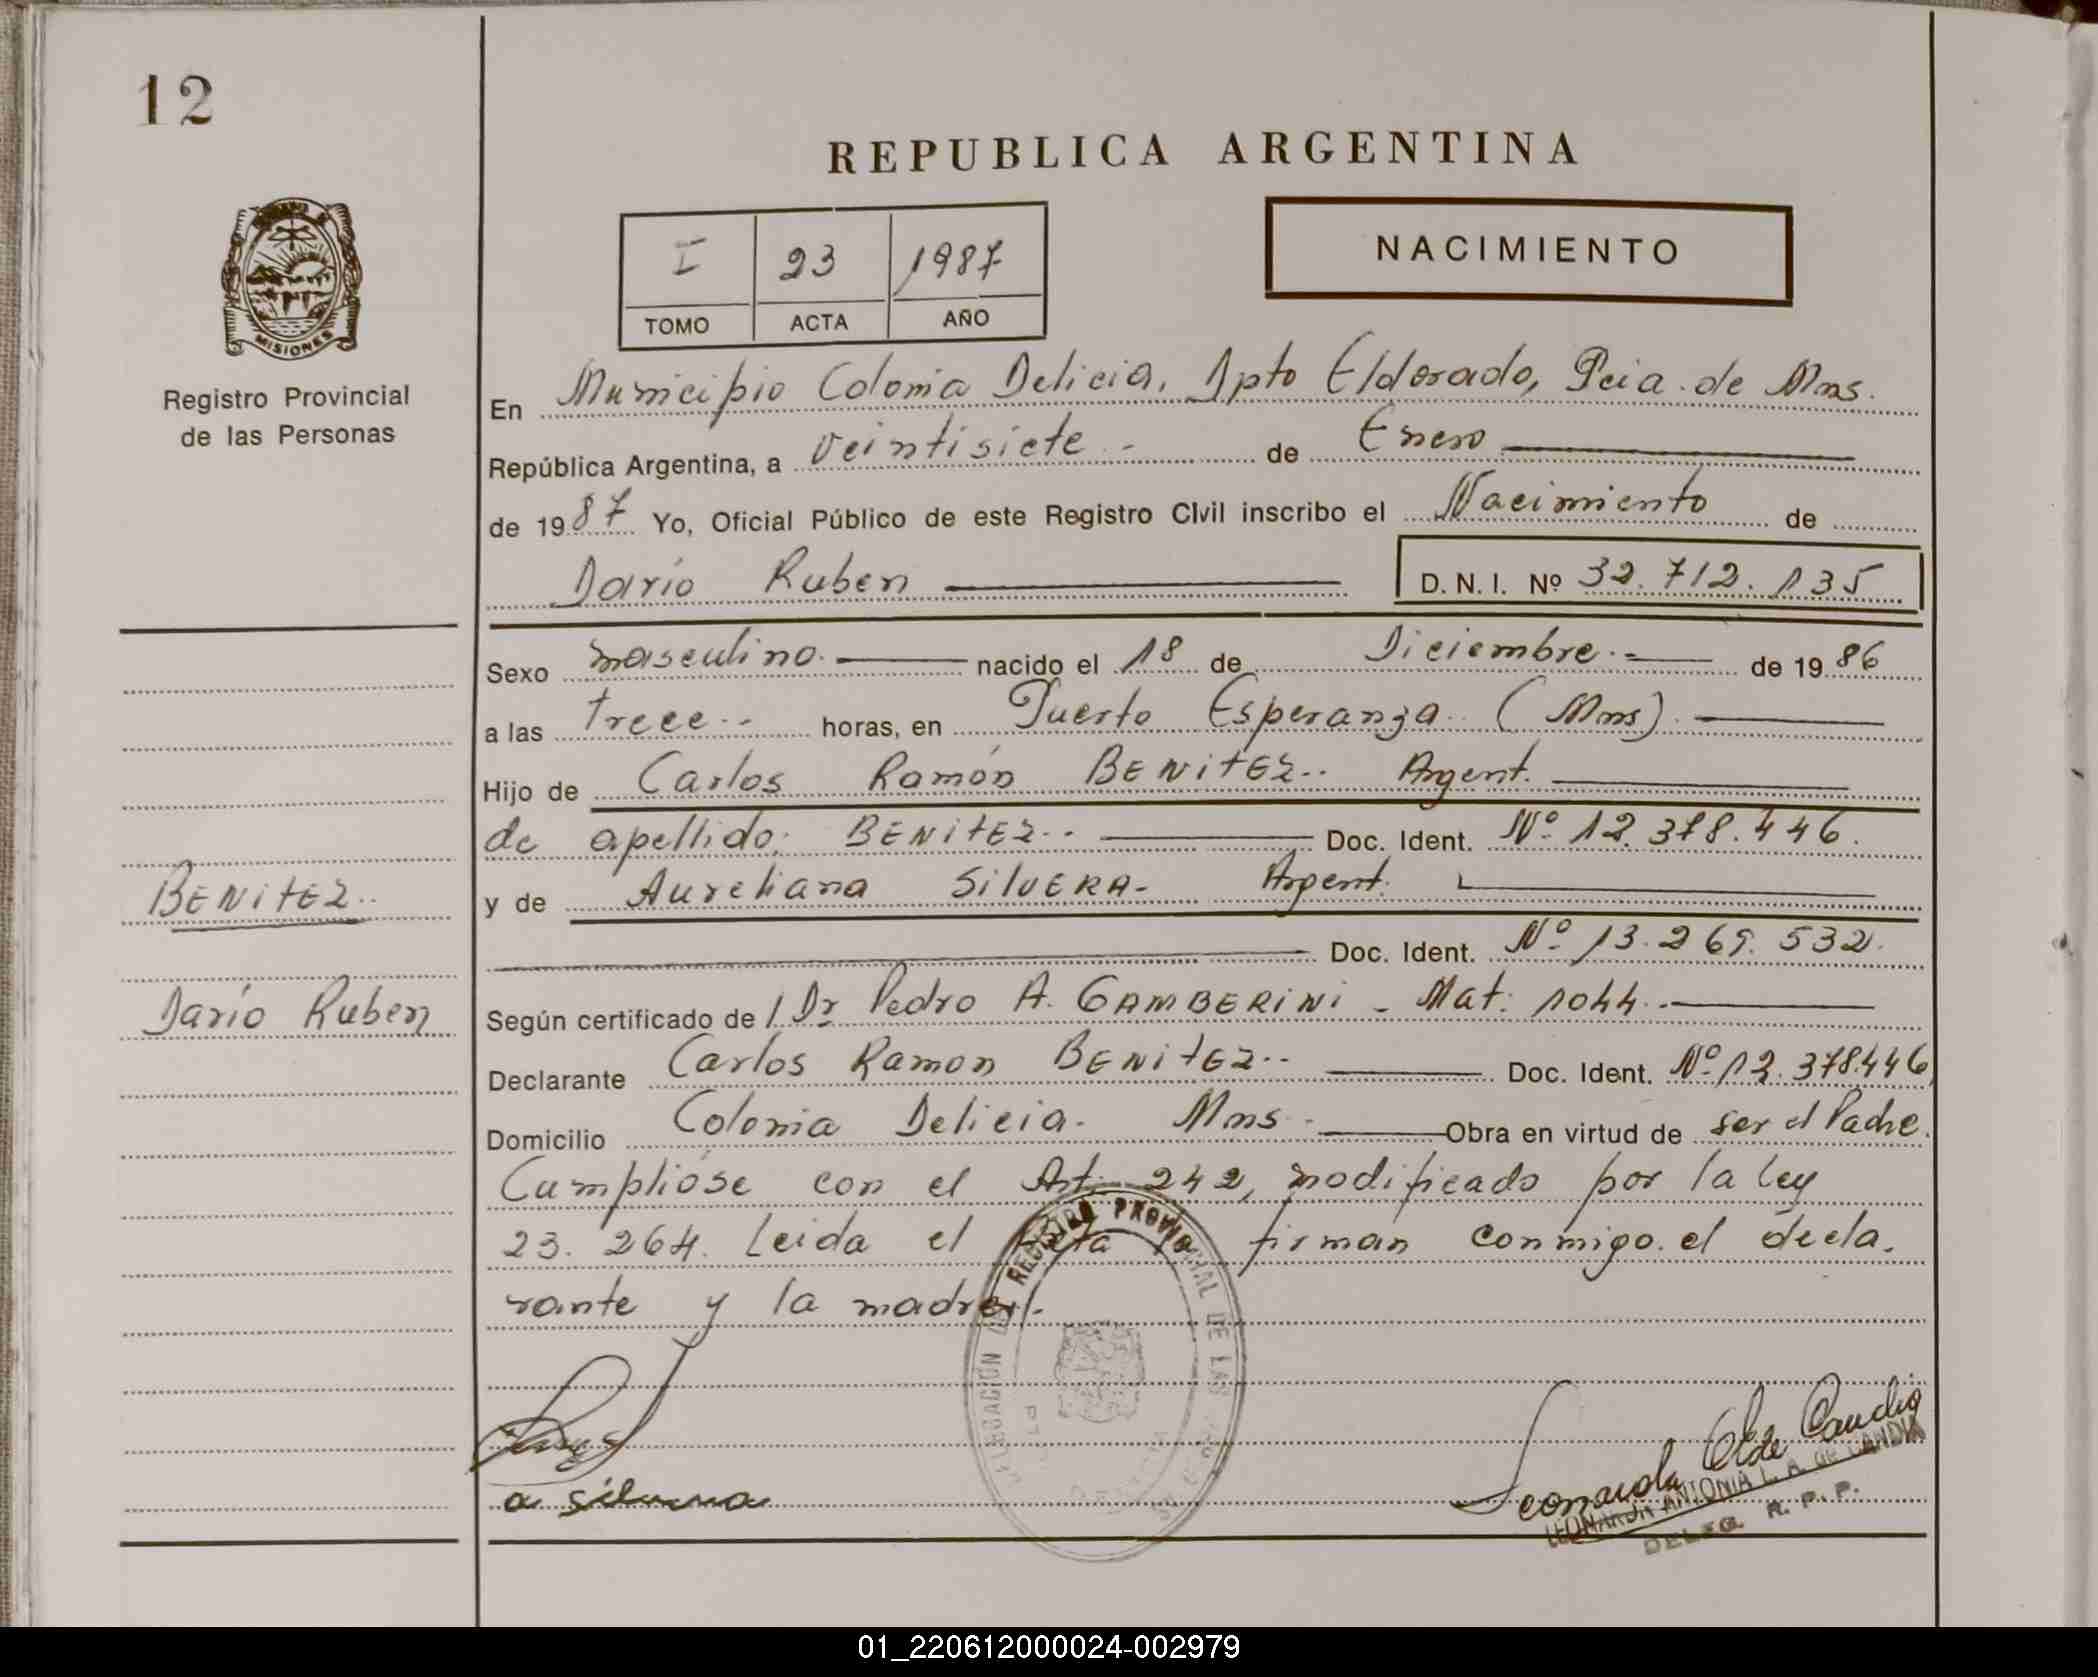 12
REPUBLICA ARGENTINA
I 23 1987
TOMO ACTA AÑO
NACIMIENTO
MISIONES
Registro Provincial
de las Personas
En Municipio Colonia Delicia, Dpto Eldorado, Pcia. de Mns.
República Argentina, a veintisiete.- de Enero
de 1987 Yo, Oficial Público de este Registro Civil inscribo el Nacimiento de
Darío Ruben D. N. I. Nº 32.712.135
Sexo masculino. nacido el 18 de Diciembre.- de 1986
a las trece.- horas, en Puerto Esperanza. (Mns).
Hijo de Carlos Ramón BENITEZ.. Argent.
de apellido: BENITEZ.. Doc. Ident. Nº 12.378.446.
y de Aureliana SILVERA- Argent.
Doc. Ident. Nº 13.269.532.
Según certificado de / Dr Pedro A. GAMBERINI - Mat: 1044.-
Declarante Carlos Ramon BENITEZ.. Doc. Ident. Nº 12.378.446,
Domicilio Colonia Delicia. Mns. Obra en virtud de ser el Padre.
Cumplióse con el Art. 242, modificado por la ley
23.264. Leida el Acta la firman conmigo. el decla.
rante y la madre.
BENITEZ..
Darío Ruben
DELEGACIÓN DEL REGISTRO PROVINCIAL DE LAS
a silvera
Leonarda A. de Candia
LEONARDA ANTONIA L. A. DE CANDIA
DELEG. R. P. P.
01_220612000024-002979